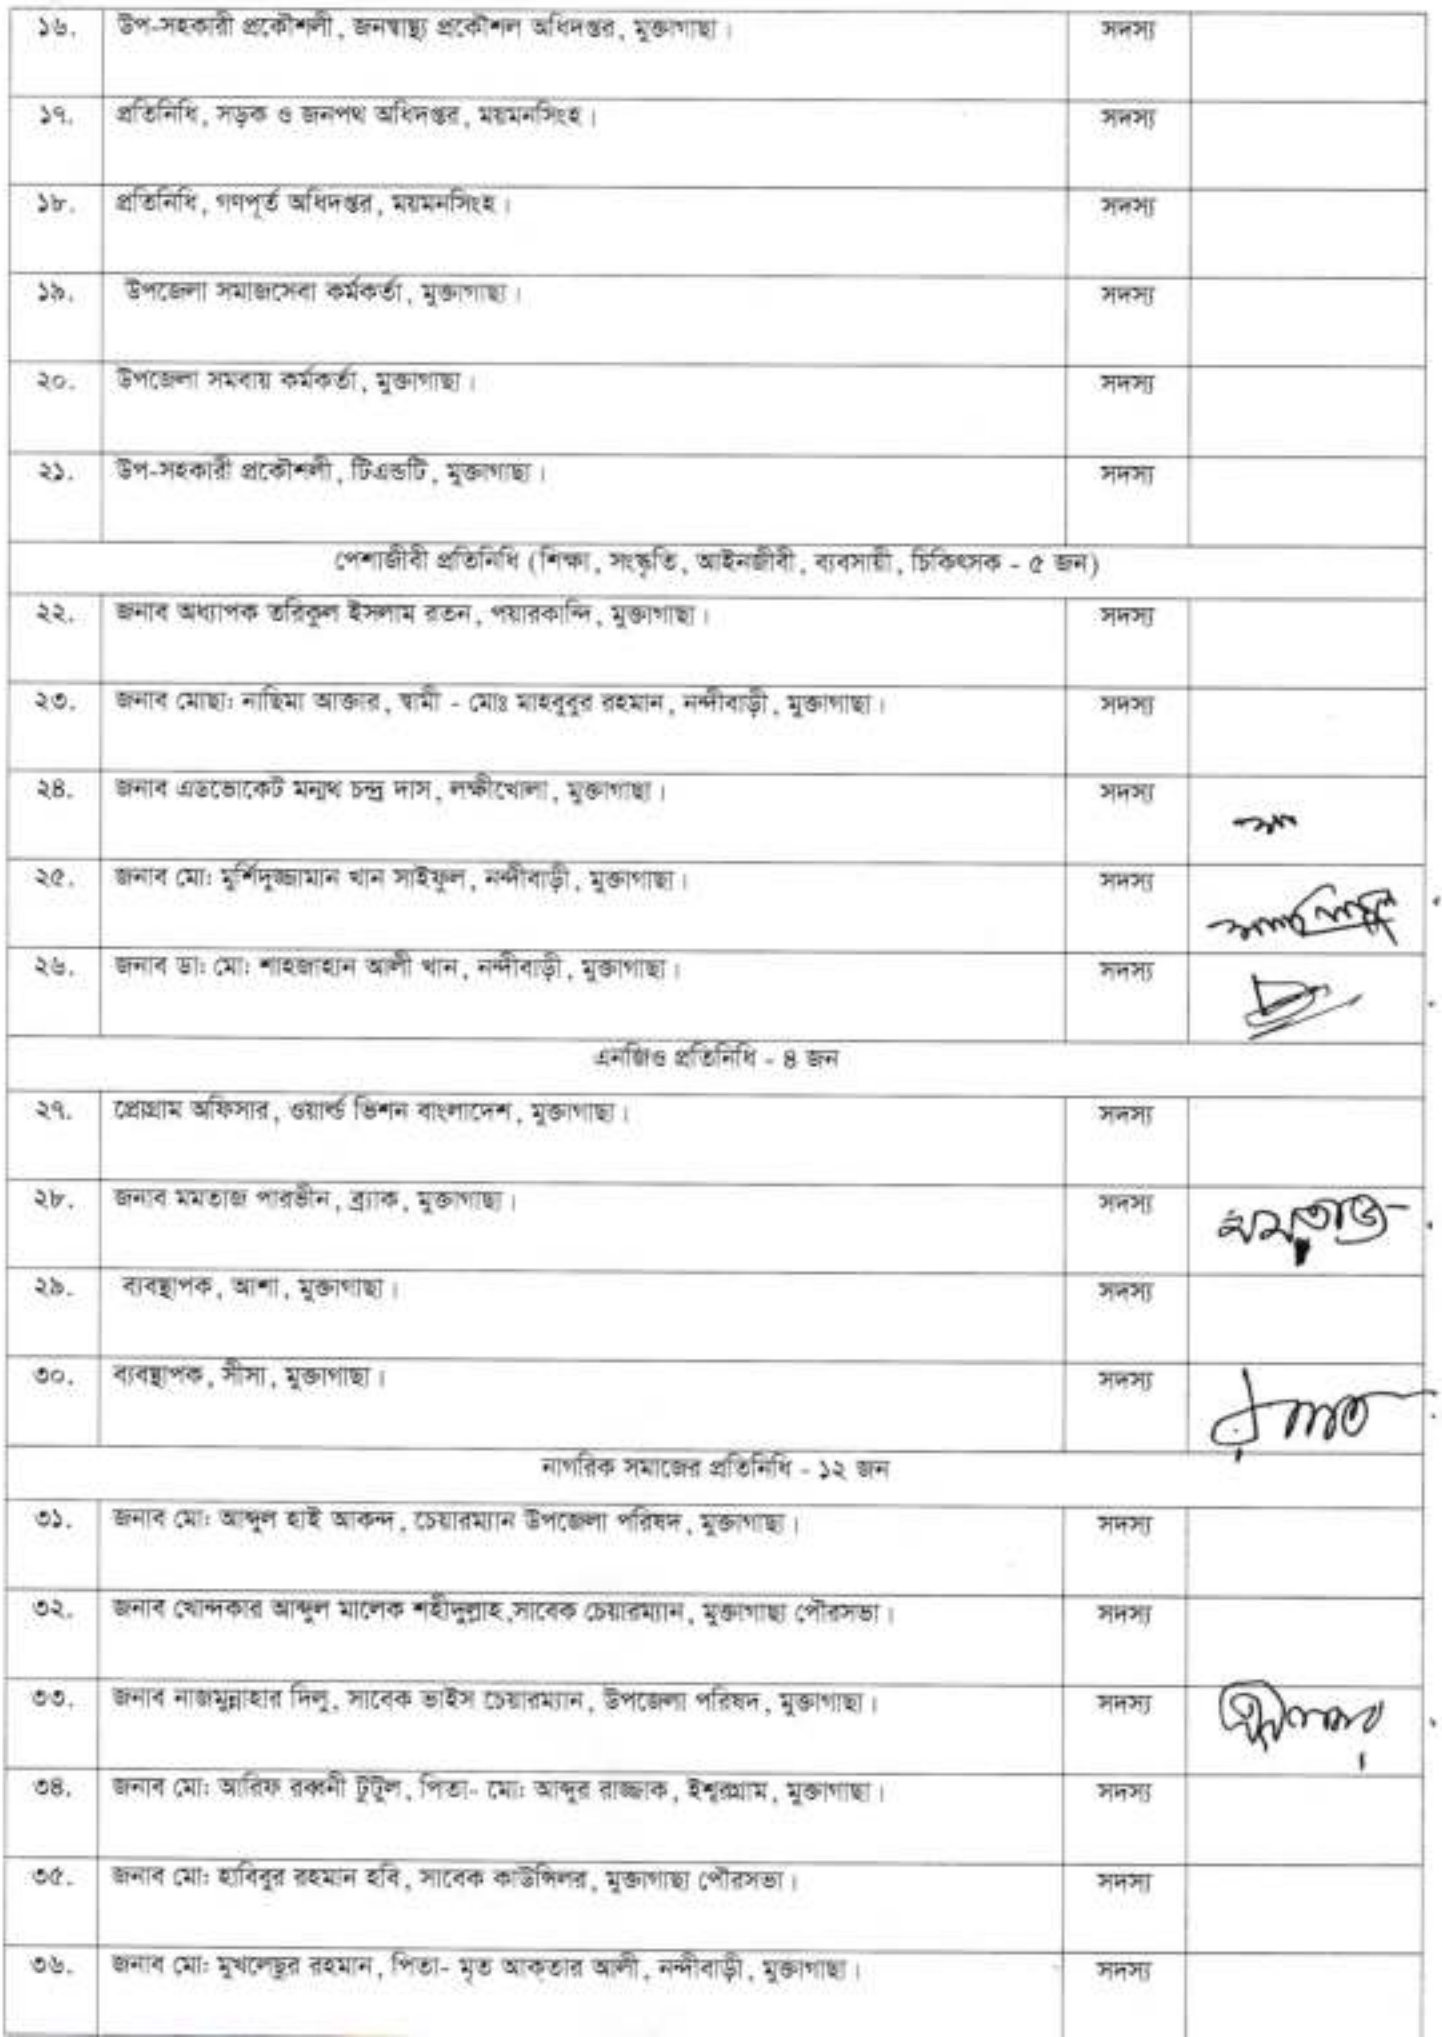 ১৬. উপ-সহকারী প্রকৌশলী, জনস্বাস্থ্য প্রকৌশল অধিদপ্তর, মুক্তাগাছা। সদস্য
১৭. প্রতিনিধি, সড়ক ও জনপথ অধিদপ্তর, ময়মনসিংহ। সদস্য
১৮. প্রতিনিধি, গণপূর্ত অধিদপ্তর, ময়মনসিংহ। সদস্য
১৯. উপজেলা সমাজসেবা কর্মকর্তা, মুক্তাগাছা। সদস্য
২০. উপজেলা সমবায় কর্মকর্তা, মুক্তাগাছা। সদস্য
২১. উপ-সহকারী প্রকৌশলী, টিএন্ডটি, মুক্তাগাছা। সদস্য
পেশাজীবী প্রতিনিধি (শিক্ষা, সংস্কৃতি, আইনজীবী, ব্যবসায়ী, চিকিৎসক - ৫ জন)
২২. জনাব অধ্যাপক তরিকুল ইসলাম রতন, পয়ারকান্দি, মুক্তাগাছা। সদস্য
২৩. জনাব মোছা: নাছিমা আক্তার, স্বামী - মোঃ মাহবুবুর রহমান, নন্দীবাড়ী, মুক্তাগাছা। সদস্য
২৪. জনাব এডভোকেট মন্মথ চন্দ্র দাস, লক্ষীখোলা, মুক্তাগাছা। সদস্য
২৫. জনাব মো: মুর্শিদুজ্জামান খান সাইফুল, নন্দীবাড়ী, মুক্তাগাছা। সদস্য
২৬. জনাব ডা: মো: শাহজাহান আলী খান, নন্দীবাড়ী, মুক্তাগাছা। সদস্য
এনজিও প্রতিনিধি - ৪ জন
২৭. প্রোগ্রাম অফিসার, ওয়ার্ল্ড ভিশন বাংলাদেশ, মুক্তাগাছা। সদস্য
২৮. জনাব মমতাজ পারভীন, ব্র্যাক, মুক্তাগাছা। সদস্য মমতাজ
২৯. ব্যবস্থাপক, আশা, মুক্তাগাছা। সদস্য
৩০. ব্যবস্থাপক, সীসা, মুক্তাগাছা। সদস্য
নাগরিক সমাজের প্রতিনিধি - ১২ জন
৩১. জনাব মো: আব্দুল হাই আকন্দ, চেয়ারম্যান উপজেলা পরিষদ, মুক্তাগাছা। সদস্য
৩২. জনাব খোন্দকার আব্দুল মালেক শহীদুল্লাহ,সাবেক চেয়ারম্যান, মুক্তাগাছা পৌরসভা। সদস্য
৩৩. জনাব নাজমুন্নাহার দিলু, সাবেক ভাইস চেয়ারম্যান, উপজেলা পরিষদ, মুক্তাগাছা। সদস্য
৩৪. জনাব মো: আরিফ রব্বনী টুটুল, পিতা- মো: আব্দুর রাজ্জাক, ইশ্বরগ্রাম, মুক্তাগাছা। সদস্য
৩৫. জনাব মো: হাবিবুর রহমান হবি, সাবেক কাউন্সিলর, মুক্তাগাছা পৌরসভা। সদস্য
৩৬. জনাব মো: মুখলেছুর রহমান, পিতা- মৃত আক্তার আলী, নন্দীবাড়ী, মুক্তাগাছা। সদস্য